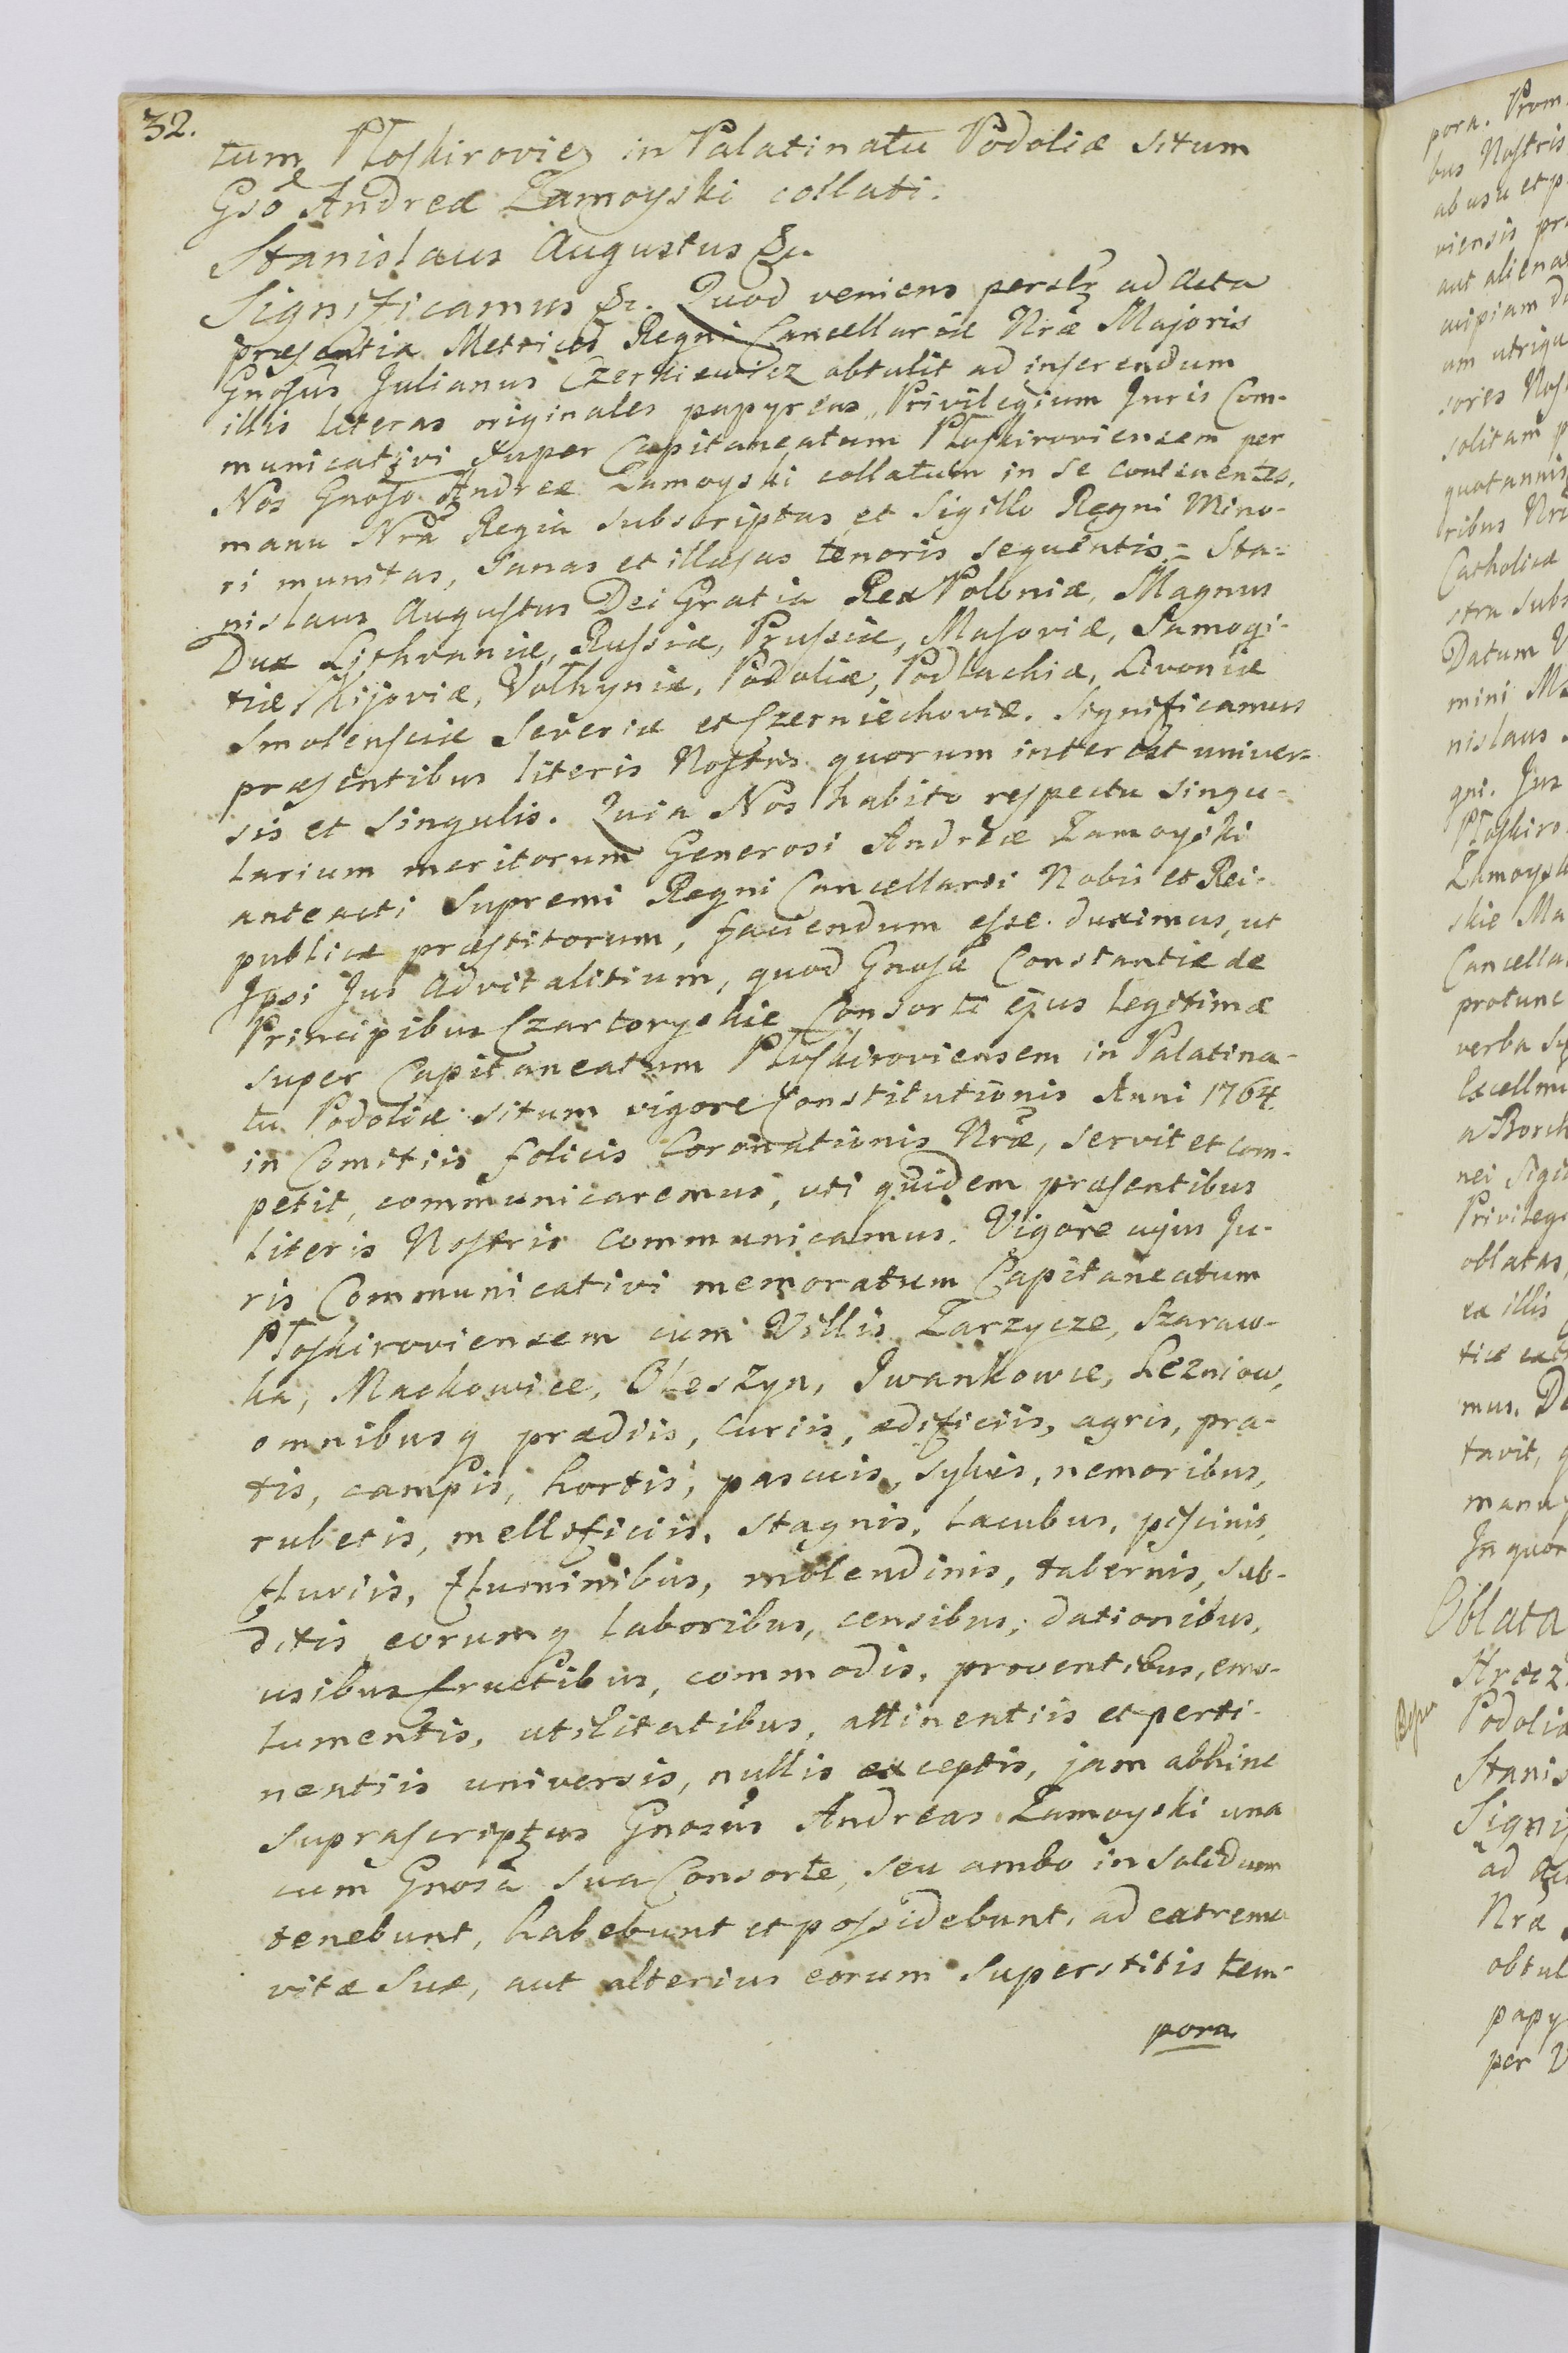 32.
tum Płoskirowiez in Palatinatu Podoliæ situm
Gsō Andreæ Zamoyski collati.
Stanislaus Augustus &c.
Significamus &c. Quod veniens persltr ad Acta
præsentia Metrices Regni Cancellariæ Nræ Majoris
Gnosus Julianus Czerkiewicz obtulit ad inserendum
illis literas originales papyreas, Privilegium Juris Com-
municativi super Capitaneatum Płoskiroviensem per
Nos Gnoso Andreæ Zamoyski collatum in se continentes,
manu Nrã Regia subscriptas et Sigillo Regni Mino-
ri munitas, sanas et illæsas tenoris sequentis = Sta-
nislaus Augustus Dei Gratia Rex Poloniæ, Magnus
Dux Lithvaniæ, Russiæ, Prussiæ, Masoviæ, Samogi-
tiæ, Kijoviæ, Volhyniæ, Podoliæ, Podlachiæ, Livoniæ
Smolensciæ Severiæ et Czerniechoviæ. Significamus
præsentibus literis Nostris quorum interest univer-
sis et singulis. Quia Nos habito respectu singu-
larium meritorum Generosi Andreæ Zamoyski
anteacti Supremi Regni Cancellarii Nobis et Rei-
publicæ præstitorum, faciendum esse duximus, ut
Ipsi Jus advitalitium, quod Gnosæ Constantiæ de
Principibus Czartoryskie Consorti ejus legitimæ
super Capitaneatum Płoskiroviensem in Palatina-
tu Podoliæ situm vigore Constitutionis Anni 1764.
in Comitiis felicis Coronationis Nræ, servit et com-
petit, communicaremus, uti quidem præsentibus
literis Nostris communicamus. Vigore cujus Ju-
ris Communicativi memoratum Capitaneatum
Płoskiroviensem cum Villis Zarzycze, Szaraw-
ka, Mackowice, Oleszyn, Iwankowce, Lezniow,
omnibusq prædiis, curiis, ædificiis, agris, pra-
tis, campis, hortis, pascuis, sylvis, nemoribus,
rubetis, mellificiis, stagnis, lacubus, piscinis,
fluviis, fluminibus, molendinis, tabernis, sub-
ditis eorumq laboribus, censibus, dationibus,
usibusfructibus, commodis, proventibus, emo-
lumentis, utilitatibus, attinentiis et perti-
nentiis universis, nullis exceptis, jam abhinc
suprascriptus Gnosus Andreas Zamoyski una
cum Gnosa sua Consorte, seu ambo in solidum
tenebunt, habebunt et possidebunt, ad extrema
vitæ suæ, aut alterius eorum superstitis tem-
pora
pora. Prom
bus Nostris
ab usu et p
viensis pr
aut aliena
cuipiam d
um utriqu
sores Nos
solitam p
quotannis
ribus Nr
Catholicæ
stra subs
Datum V
mini M
nislaus
gni. Jus
Płoskiro
Zamoysk
skie Ma
Cancella
protunc
verba s
Excellm
a Borch
nei Sigi
Privileg
oblatas,
ex illis
ticæ ex
mus. D
tavit, q
manu
In quor
Oblata
Podoliæ
Stanis
Signi
ad Ac
Nræ
obtul
papy
per V